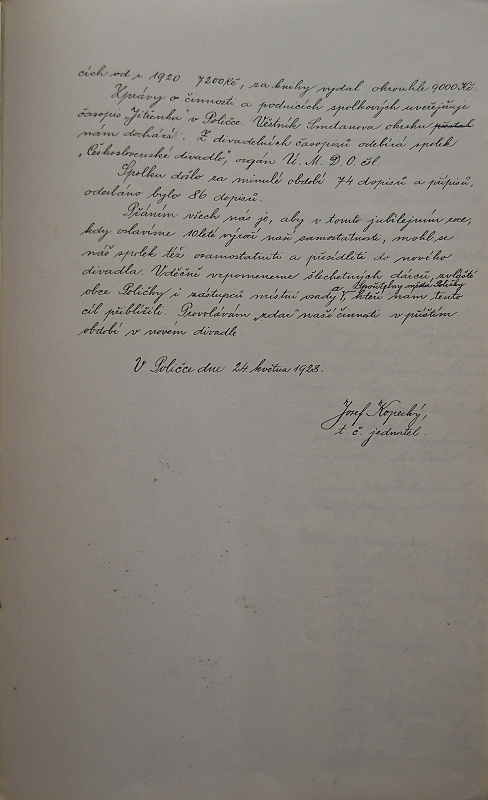 cích od r. 1920 7200 Kč, za knihy vydal okrouhle 9000 Kč.
Zprávy o činnosti a podnicích spolkových uveřejňuje
časopis „Jitřenka" v Poličce. Věstník Smetanova okrsku přestal
nám docházeti. Z divadelních časopisů odebírá spolek
„Československé divadlo", orgán Ú. M. D. O. čsl.
Spolku došlo za minulé období 74 dopisů a přípisů,
odesláno bylo 86 dopisů.
Přáním všech nás je, aby v tomto jubilejním roce,
kdy oslavíme 10leté výročí naší samostatnosti, mohl se
náš spolek též osamostatniti a přesídliti do nového
divadla. Vděčně vzpomeneme šlechetných dárců, zvláště
obce Poličky i zástupců místní osady a Spořitelny města Poličky, kteří nám tento
cíl přiblížili. Provolávám „zdar" naší činnosti v příštím
období v novém divadle.
V Poličce dne 24 května 1928.
Josef Kopecký,
t. č. jednatel.